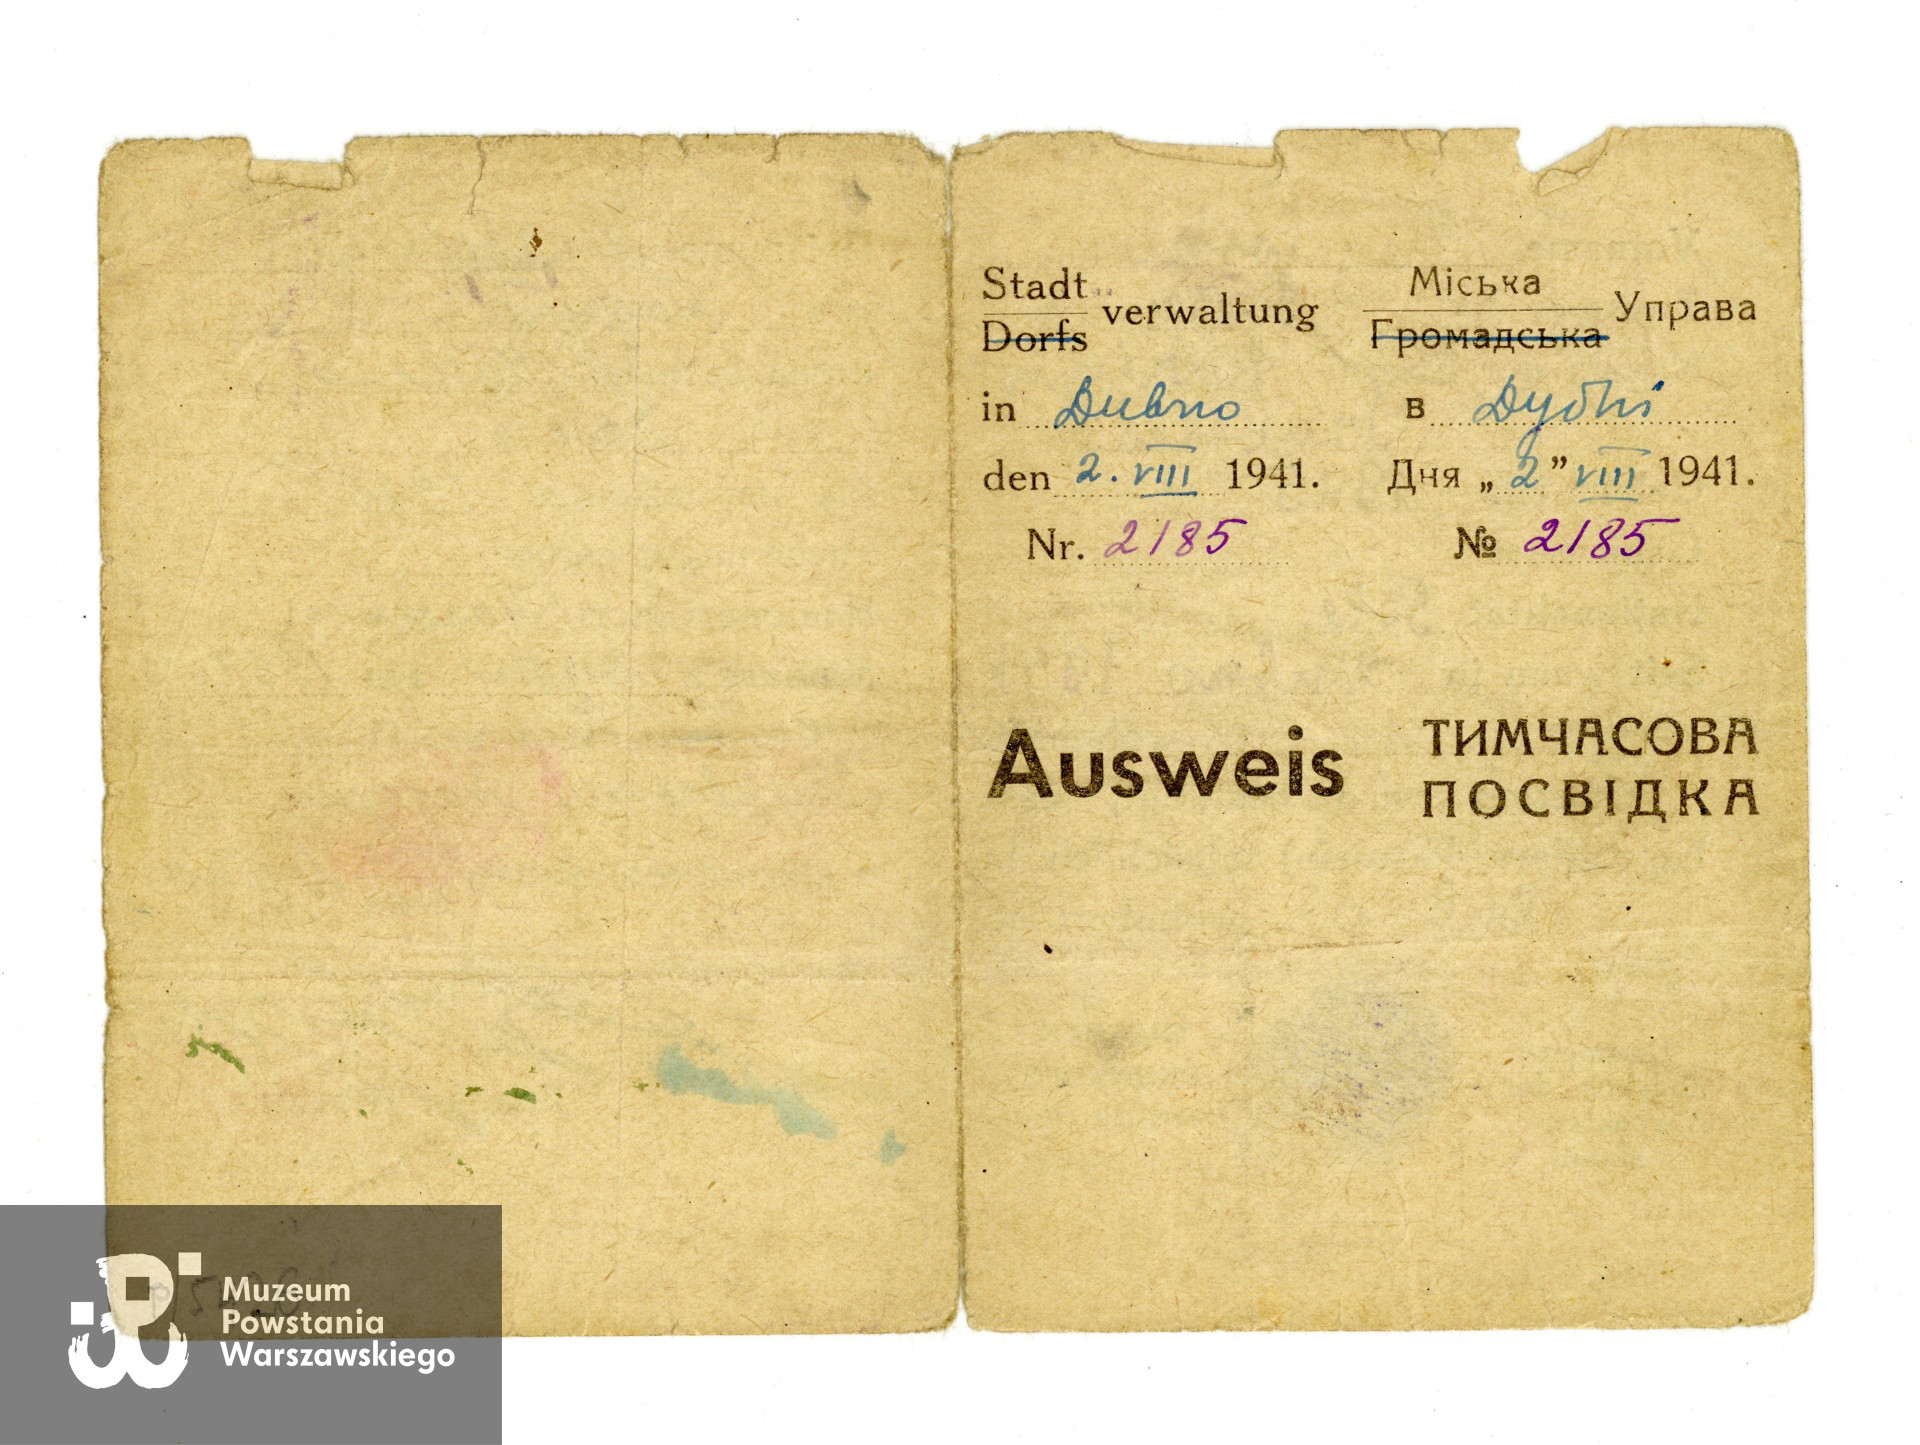 Stadt
Dorfs
verwaltung
in Dubno
den 2. VIII 1941.
Nr. 2185
Міська
Громадська
Управа
в Дубні
Дня „2” VIII 1941.
№ 2185
Ausweis
ТИМЧАСОВА
ПОСВІДКА
Muzeum
Powstania
Warszawskiego